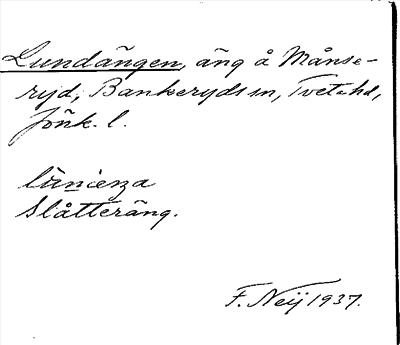 Lundängen, äng å Månse-
ryd, Bankeryds sn, Tveta hd,
Jönk. l.
lùniеŋa
Slåtteräng.
F. Neij 1937.